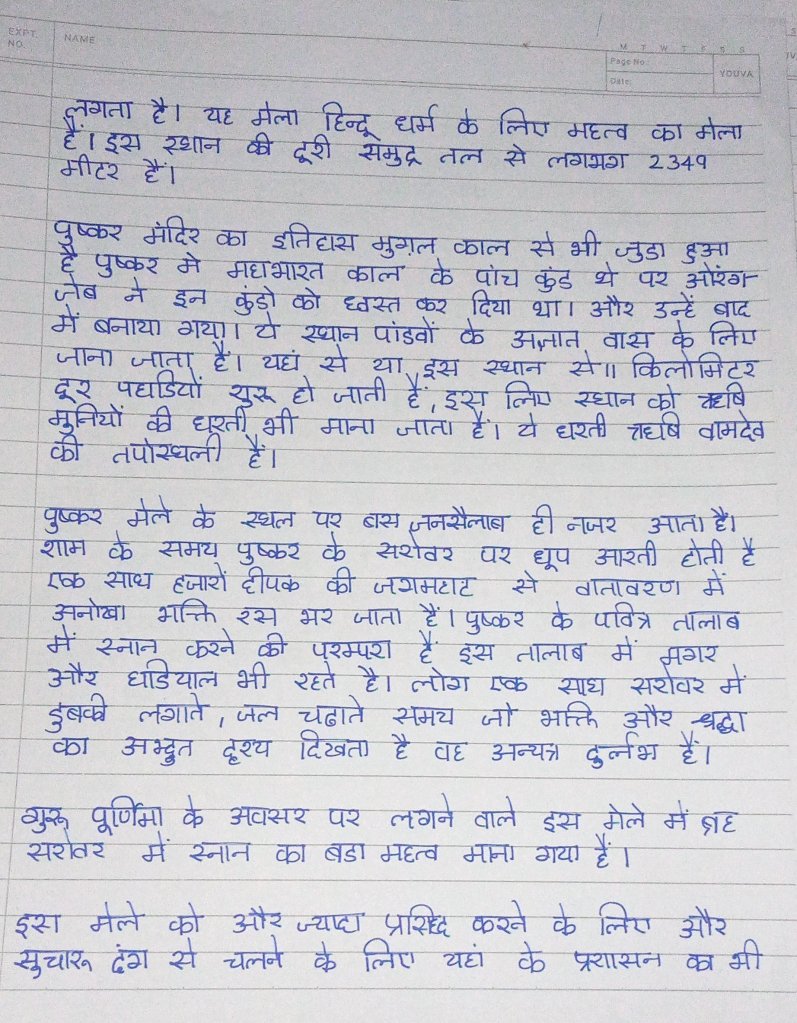 EXPT. NO.
NAME
M T W T F S S
Page No.:
Date:
YOUVA
लगता है। यह मेला हिन्दू धर्म के लिए महत्व का मेला
हैं। इस स्थान की दूरी समुद्र तल से लगभग 2349
मीटर हैं।
पुष्कर मंदिर का इतिहास मुग़ल काल से भी जुडा हुआ
है पुष्कर मे महाभारत काल के पांच कुंड थे पर ओरंग-
जेब ने इन कुंडो को ध्वस्त कर दिया था। और उन्हें बाद
में बनाया गया। ये स्थान पांडवों के अज्ञात वास के लिए
जाना जाता हैं। यहां से या इस स्थान से 11 किलोमिटर
दूर पहाडियों शुरू हो जाती हैं, इस लिए स्थान को ऋषि
मुनियों की धरती भी माना जाता हैं। ये धरती ऋषि वामदेव
की तपोस्थली हैं।
पुष्कर मेले के स्थल पर बस जनसैलाब ही नजर आता है।
शाम के समय पुष्कर के सरोवर पर धूप आरती होती है
एक साथ हजारों दीपक की जगमहाट से वातावरण में
अनोखा भक्ति रस भर जाता हैं। पुष्कर के पवित्र तालाब
में स्नान करने की परम्परा हैं इस तालाब में मगर
और घडियाल भी रहते है। लोग एक साथ सरोवर में
डुबकी लगाते, जल चढाते समय जो भक्ति और श्रद्धा
का अद्भुत दृश्य दिखता है वह अन्यत्र दुर्लभ हैं।
गुरू पूर्णिमा के अवसर पर लगने वाले इस मेले में ब्रह
सरोवर में स्नान का बडा महत्व माना गया हैं।
इस मेले को और ज्यादा प्रसिद्ध करने के लिए और
सुचारू ढंग से चलने के लिए यहां के प्रशासन का भी